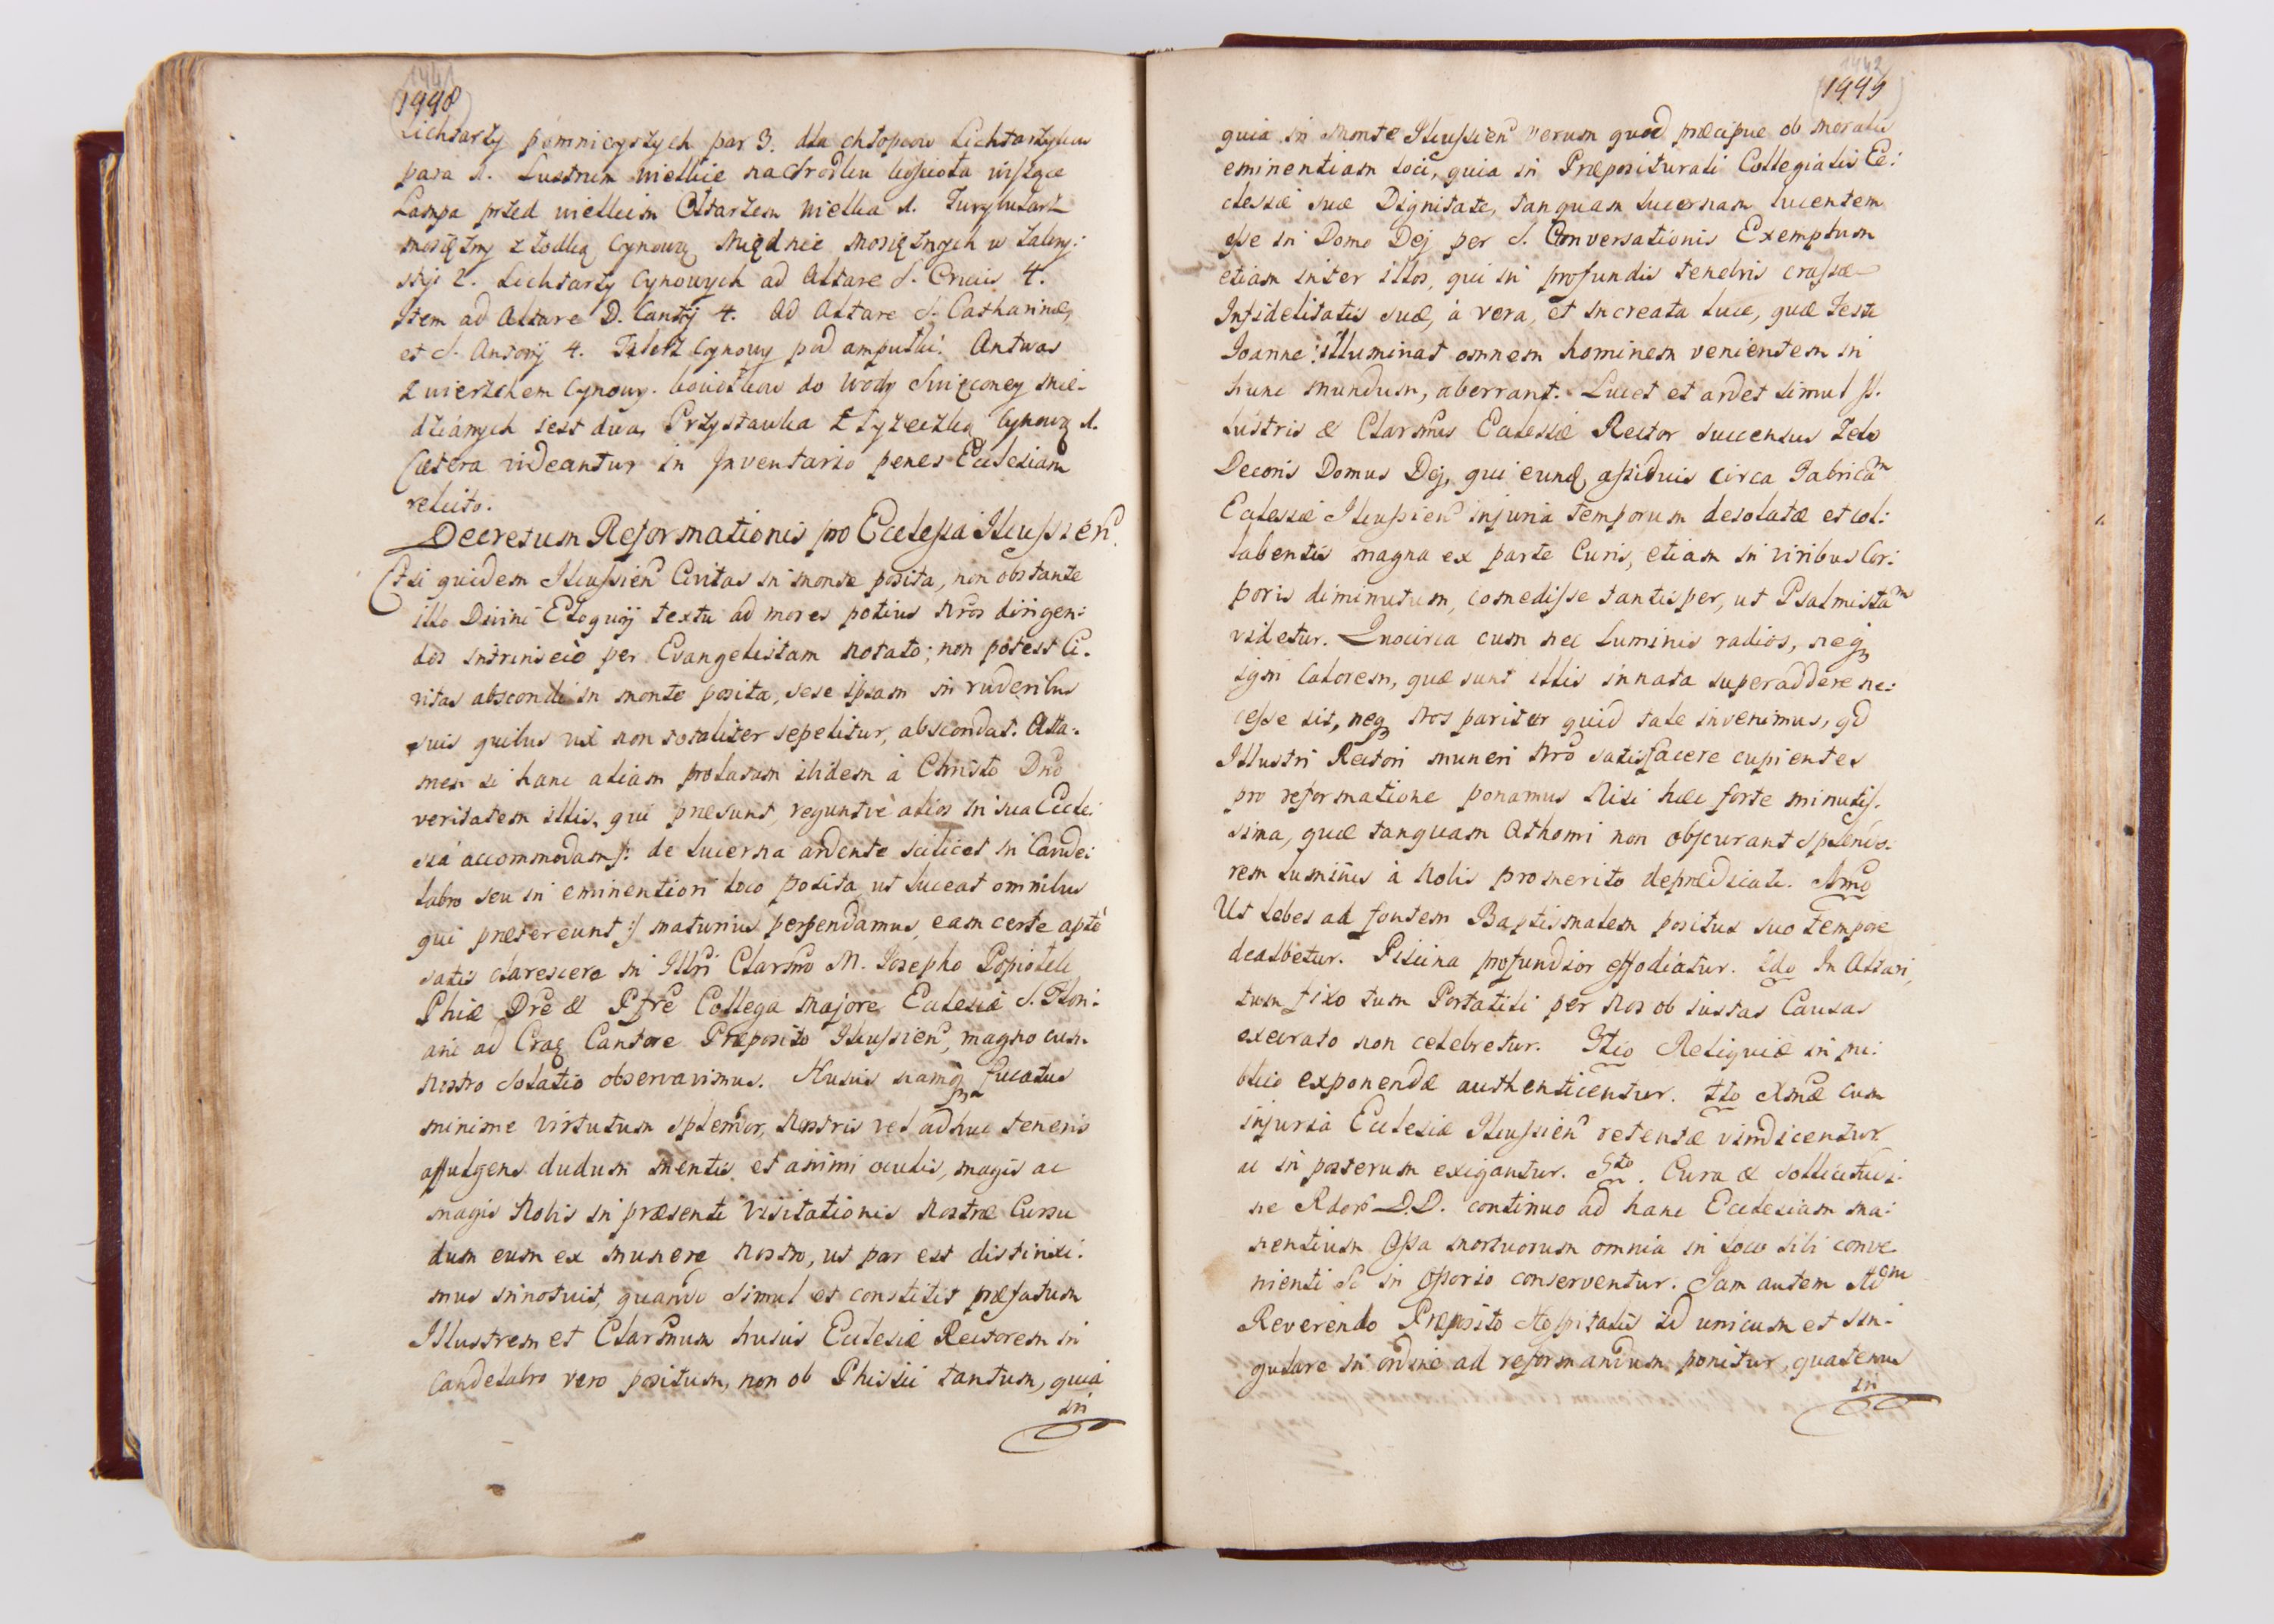 1441
1448
Lichtarzy pómnieyszych par 3. dla chłopcow Lichtarzykow
para 1. Lustrum wielkie na Srodku koscioła wiszące
Lampa przed wielkim Ołtarzem wielka 1. Turybularz
mosiężny z łodką Cynową Miednic mosiężnych w zakry:
styi 2. Lichtarzy Cynowych ad Altare S. Crucis 4.
Item ad Altare D. Cantij 4. Ad Altare S. Catharinæ,
et S. Antonij 4. Talerz Cynowy pod ampułki. Antwas
z wierzchem Cynowy. kociołkow do Wody Swięconey mie-
dzianych iest dwa, Przystawka z łyżeczką Cynową 1.
Cætera videantur in Inventario penes Ecclesiam
relicto.
Decretum Reformationis pro Ecclesia Ilkussien.
Etsi quidem Ilkussien Civitas in monte posita, non obstante
illo Divini Eloquij textu ad mores potius nros dirigen:
dos intrinsecè per Evangelistam notato; non potest Ci-
vitas abscondi in monte posita, sese ipsam in ruderibus
suis quibus vix non totaliter sepelitur, abscondat. Atta-
men si hanc aliam prolatam ibidem à Christo Dno
veritatem illis, qui præsunt, reguntvè alios in sua Eccle:
sia accommodam /: de lucerna ardente scilicet in Cande:
labro seu in eminentiori loco posita, ut luceat omnibus
qui prætereunt :/ maturius perpendamus, eam certe aptè
satis clarescere in Illri Clarsmo M. Josepho Popiołek
Phiæ Dre & Pfre Collega Majore Ecclesiæ S. Flori:
ani ad Crac Cantore Præposito Ilkussien, magno cum
nostro solatio observavimus. Hujus namq fucatus
minime virtutum splendor, nostris vel adhuc teneris
affulgens dudum mentis et animi oculis, magis ac
magis Nobis in præsenti Visitationis nostræ Cursu
dum eum ex munere nostro, ut par est distinxi:
mus innotuit, quando simul et constitit præfatum
Illustrem et Clarsmum hujus Ecclesiæ Rectorem in
Candelabro vero positum, non ob Phisici tantum, quia
in
1442
1449
quia in Monte Ilkussien verum quod præcipue ob moralis
eminentiam loci, quia in Præpositurali Collegialis Ec:
clesiæ suæ Dignitate, tanquam lucernam lucentem
esse in Domo Dej per S. Conversationis Exemplum
etiam inter illos, qui in profundis tenebris crassæ
Infidelitatis suæ, à vera, et increata luce, quæ teste
Joanne illuminat omnem hominem venientem in
hunc mundum, aberrant. Lucet et ardet simul Il-
lustris & Clarsmus Ecclesiæ Rector succensus zelo
Decoris Domus Dej, qui eunq assiduis circa Fabricam
Ecclesiæ Ilkussien injuria temporum desolatæ et col:
labentis magna ex parte Curis, etiam in viribus Cor:
poris diminutum, comedisse tantisper, ut Psalmistam
videtur. Quocirca cum nec Luminis radios, neq
igni Calorem, quæ sunt illis innata superaddere ne:
cesse sit, neq nos pariter quid tale invenimus, qd
Illustri Rectori muneri nro satisfacere cupientes
pro reformatione ponamus nisi hæc forte minutis-
sima, quæ tanquam Athomi non obscurant splendo:
rem Luminis à Nobis promerito deprædicati. Imo
Ut lebes ad fontem Baptismalem positus suo tempore
dealbetur. Piscina profundior effodiatur. 2do In Altari,
tum fixo tum Portatili per nos ob iustas Causas
execrato non celebretur. 3tio Reliquiæ in pu:
blico exponendæ authenticentur. 4to Xmæ cum
injuria Ecclesiæ Ilkussien retentæ vindicentur
ac in posterum exigantur. 5to. Cura & sollicitudi:
ne Rdor DD. continuo ad hanc Ecclesiam ma:
nentium Ossa mortuorum omnia in loco sibi conve
nienti Sc in Ossorio conserventur. Jam autem Adm
Reverendo Præposito Hospitalis id unicum et sin-
gulare in ordine ad reformandum ponitur, quatenus
in